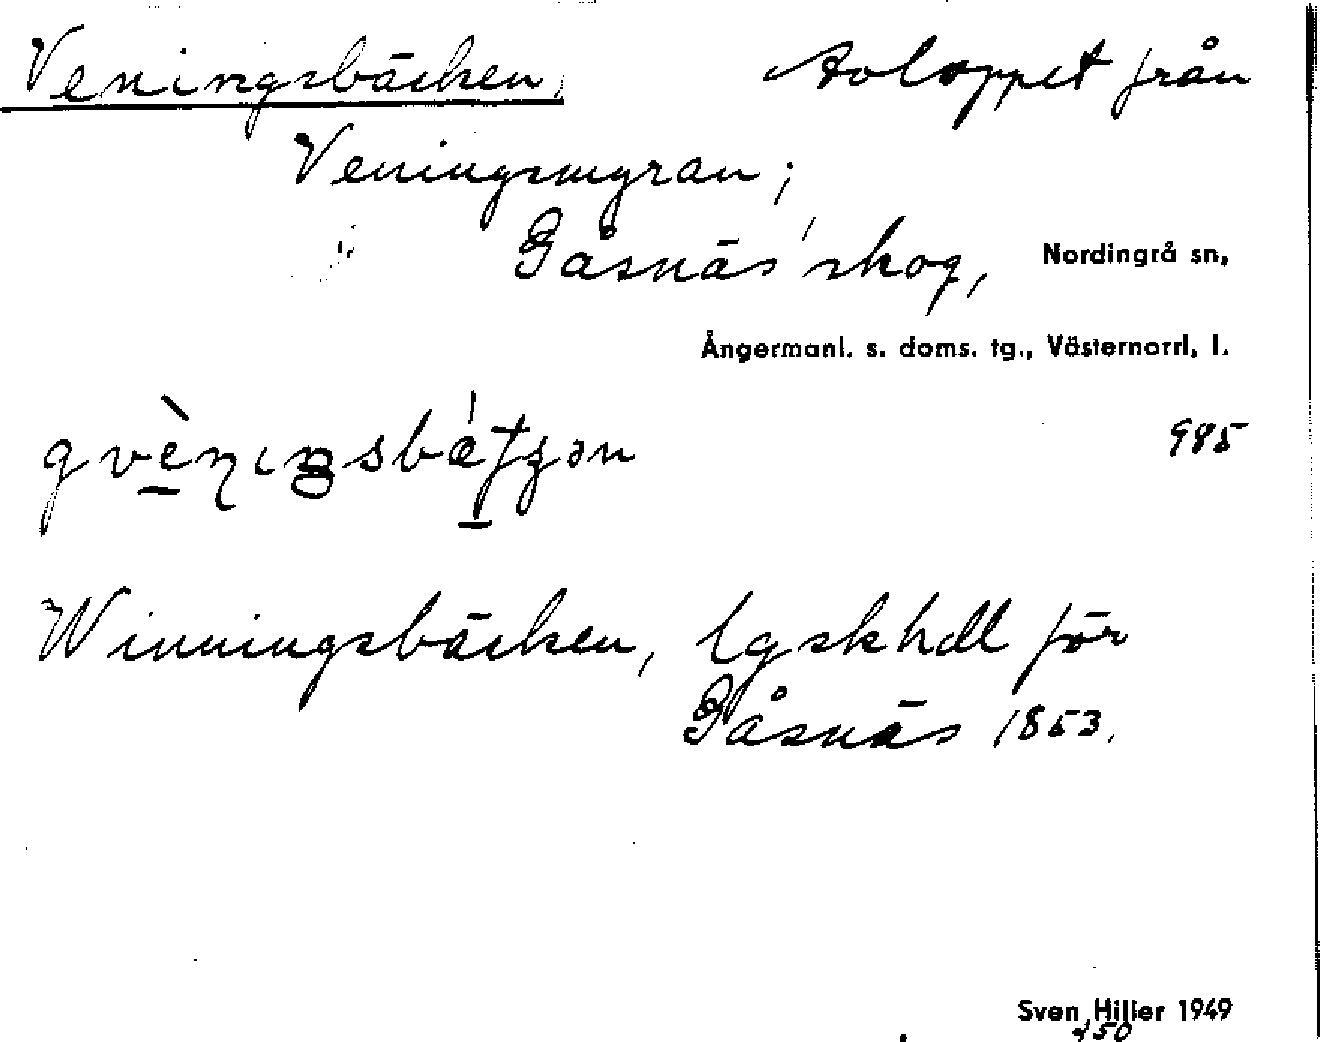 Veningsbäcken, Avloppet från
Veningsmyran;
Gåsnäs' skog, Nordingrå sn,
Ångermanl. s. doms. tg., Västernorrl, l.
985
Winningsbäcken, lgskhdl för
Gåsnäs 1853.
Sven Hiller 1949
450